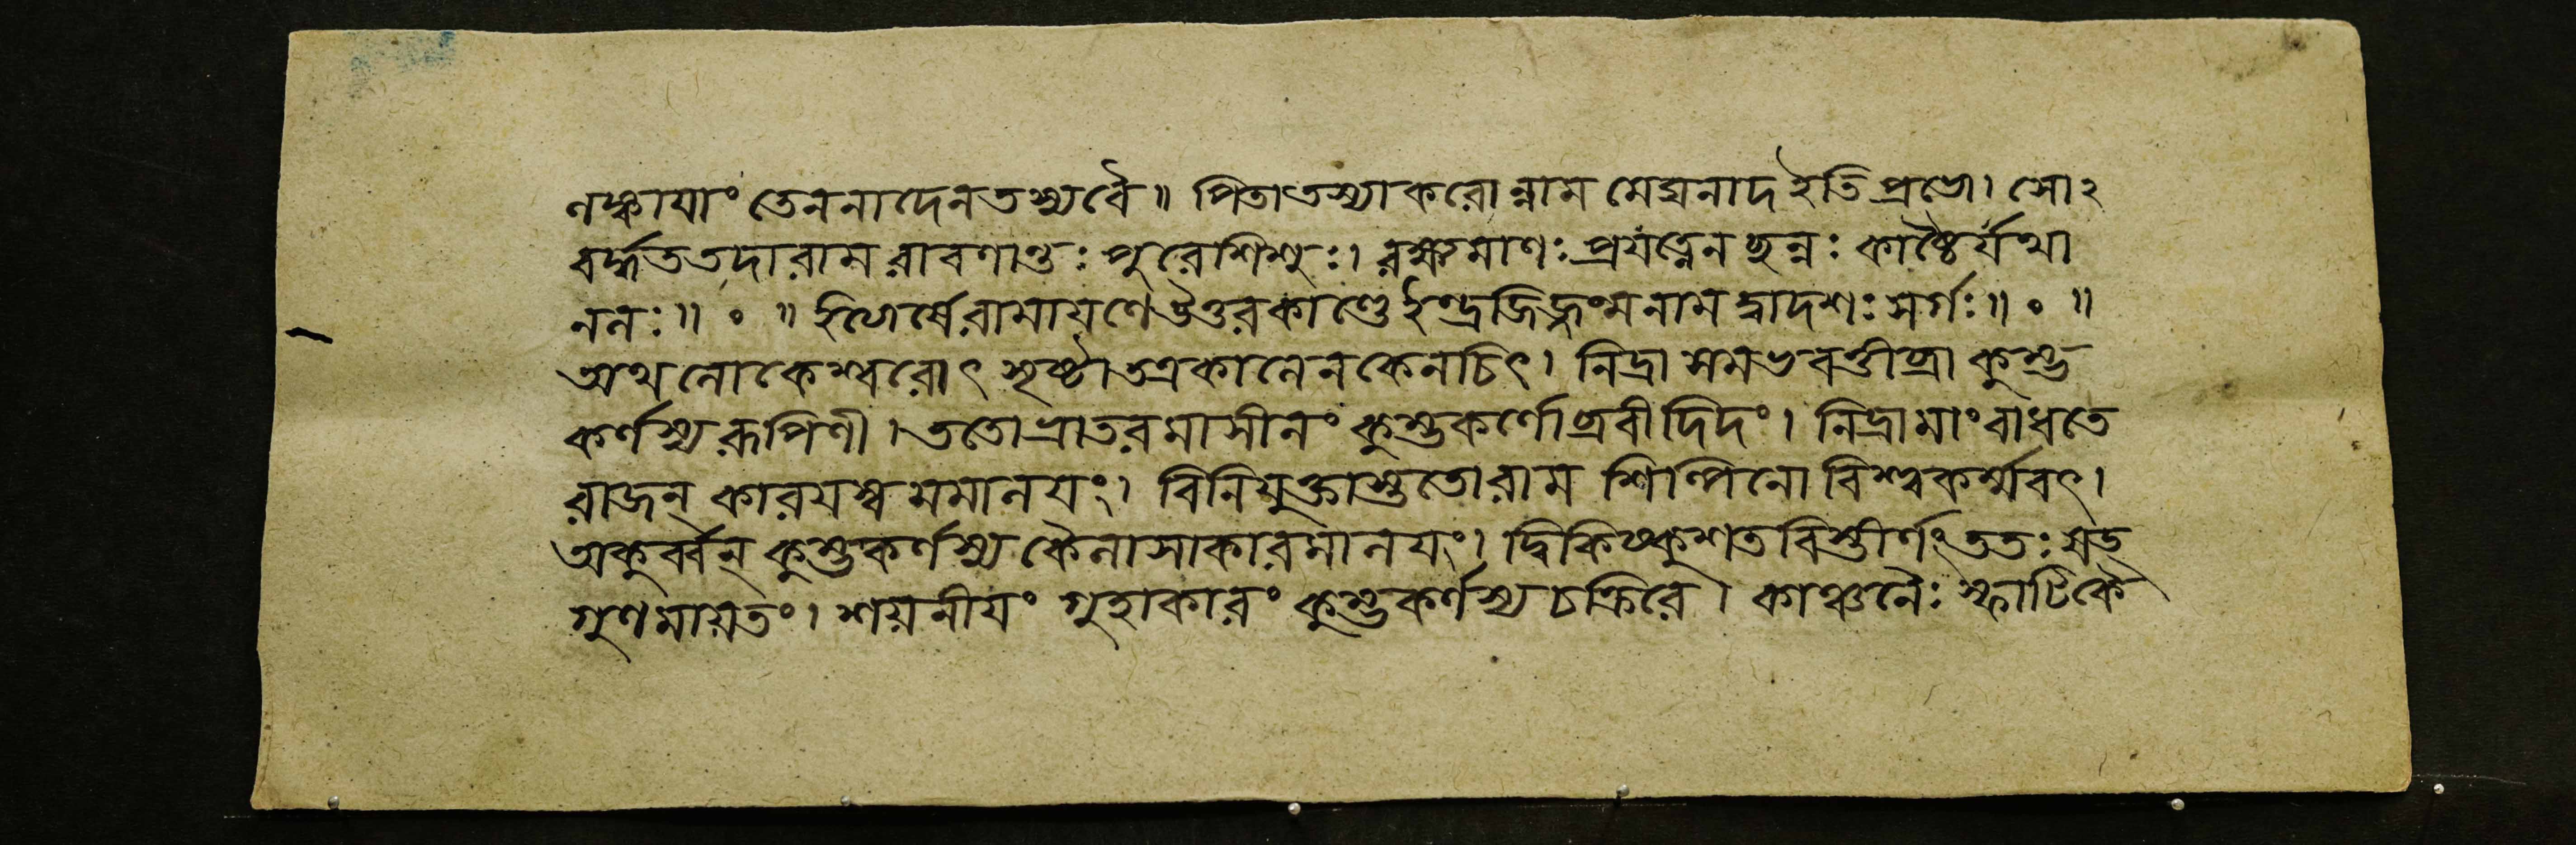 ণঙ্কায়াং তেননাদেনতস্যবৈ॥ পিতাতস্যাকরোন্নাম মেঘনাদ ইতি প্রভো। সোঽ
বর্দ্ধততদা রাম রাবণান্তঃ পুরেশিশুঃ। রক্ষ্যমাণঃ প্রযত্নেন ছন্নঃ কাষ্ঠৈর্যথা
নলঃ॥ ॰ ॥ ইত্যার্ষেরামায়ণে উত্তরকাণ্ডে ইন্দ্রজিজ্জন্মনাম দ্বাদশঃ সর্গঃ॥ ॰ ॥
অথ লোকেশ্বরোৎসৃষ্টাতত্রকালেন কেনচিৎ। নিদ্রা সমভবত্তীব্রা কুম্ভ
কর্ণস্য রূপিণী। ততো ভ্রাতরমাসীনং কুম্ভকর্ণোব্রবীদিদং। নিদ্রামাং বাধতে
রাজন্ কারয়স্ব মমালয়ং। বিনিযুক্তাস্ততো রাম শিল্পিনো বিশ্বকর্ম্মবৎ।
অকুর্ব্বন্ কুম্ভকর্ণস্য কৈলাসাকারমালয়ং। দ্বিকিষ্কুশতবিস্তীর্ণং ততঃ ষড্
গুণমায়তং। শয়নীয়ং গুহাকারং কুম্ভকর্ণস্য চক্রিরে। কাঞ্চনৈঃ স্ফাটিকৈ